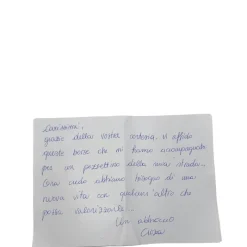 Carissimi,
questa della vostra cortona vi affido
queste borse che mi hanno accompagnata
per un pezzettino della mia strada.
Ora credo abbiano bisogno di una
nuova vita con qualcun altro che
possa valorizzarle.
Un abbraccio